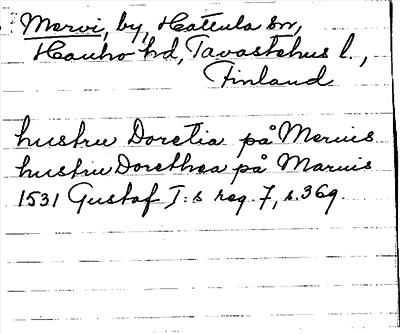 Mervi, by, Hattula sn,
Hauho hd, Tavastehus l.,
Finland
hustru Doretia på Mervis
hustru Dorethea på Marvis
1531 Gustaf I:s reg. 7, s. 369.